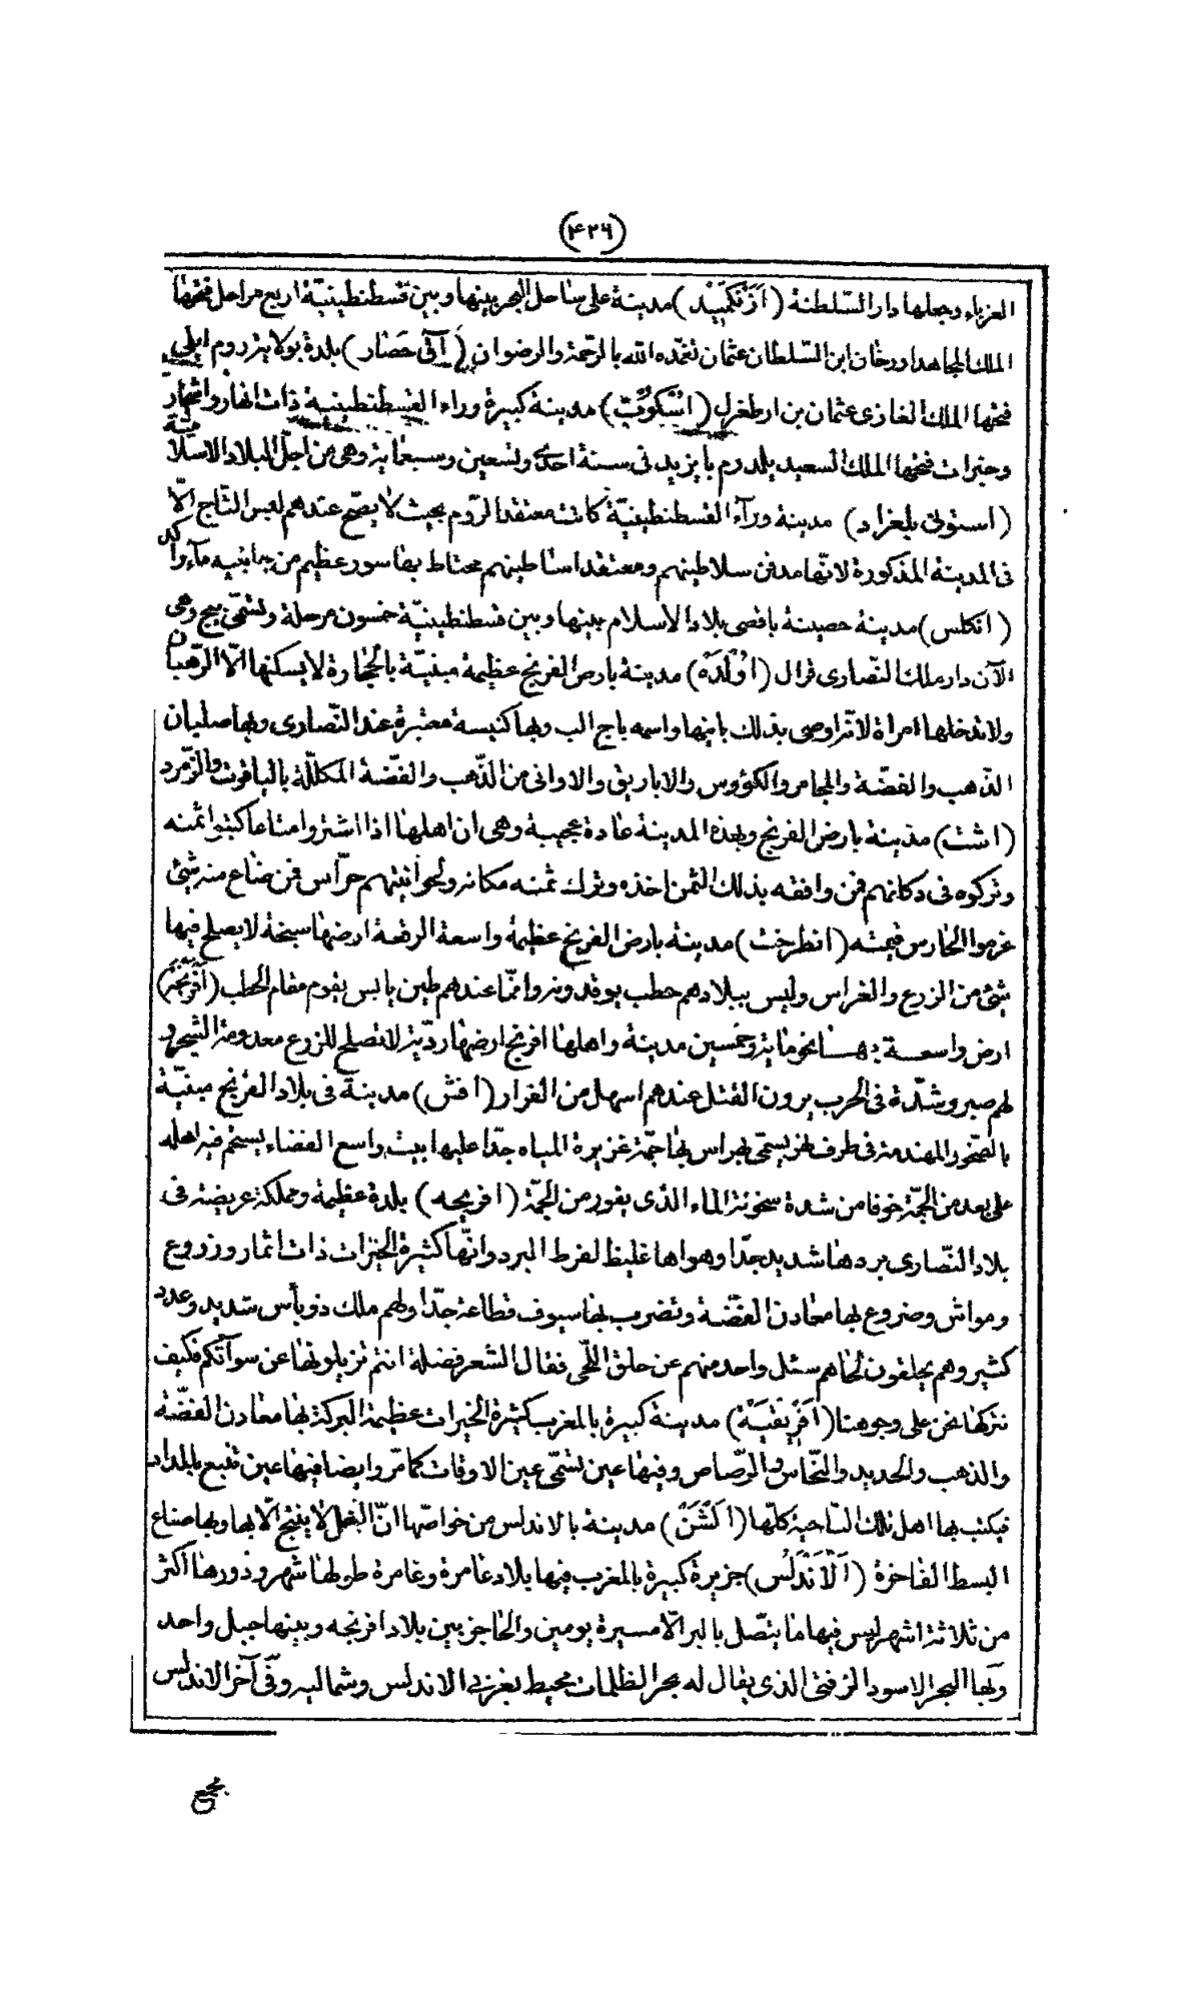 (۴۲۶)
الغرباء وجعلها دار السّلطنة (ازنكميد) مدينة على ساحل البحر بينها وبين قسطنطينيّة اربع مراحل فتحها
الملك المجاهد اورخان ابن السّلطان عثمان تغمّده الله بالرّحمة والرضوان (آق حصار) بلدة بولاية روم ايلى
فتحها الملك الغازى عثمان بن ارطغرل (اسكوب) مدينة كبيرة وراء القسطنطينية ذات انهار واشجار
وخيرات فتحها الملك السعيد يلدرم بايزيد فى سنة احدى وتسعين وسبعماية وهى من اجلّ البلاد الاسلاميّة
(استونى بلغراد) مدينة ورآء القسطنطينيّة كانت معتقد الرّوم بحيث لا يصحّ عندهم لبس التّاج الّا
فى المدينة المذكورة لانّها مدفن سلاطينهم ومعتقد اساطينهم محتاط بها سور عظيم من جانبيه مآء واكد
(انكلس) مدينة حصينة باقصى بلاد الاسلام بينها وبين قسطنطينيّة خمسون مرحلة وتسمّى بيج وهى
الآن دار ملك النّصارى قرال (اولده) مدينة بارض الفرنج عظيمة مبنيّة بالحجارة لا يسكنها الّا الرّهبان
ولا تدخلها امراة لانّه اوصى بذلك بانيها واسمه باج الب وبها كنيسة معتبرة عند النّصارى وبها صلبان
الذّهب والفضّة والمجامر والكؤوس والاباريق والاوانى من الذّهب والفضّة المكلّلة بالياقوت والزّمرد
(اشت) مدينة بارض الفرنج وبهذه المدينة عادة عجيبة وهى ان اهلها اذا اشتروا متاعا كتبوا ثمنه
وتركوه فى دكانهم فمن وافقه بذلك الثمن اخذه وترك ثمنه مكانه ولحوانيتهم حرّاس فمن ضاع منه شئ
غرموا الحارس قيمته (انطرخت) مدينة بارض الفرنج عظيمة واسعة الرقعة ارضها سبخة لا يصلح فيها
شئ من الزرع والغراس وليس ببلادهم حطب يوقدونه وانّما عندهم طين يابس يقوم مقام الحطب (افرنجة)
ارض واسعة بها نحو ماية وخمسين مدينة واهلها افرنج ارضها رديّة لا تصلح للزرع معدومة الشجر و
لهم صبر وشدّة فى الحرب يرون القتل عندهم اسهل من الفرار (افش) مدينة فى بلاد الفرنج مبنيّة
بالصّخور المهندمة فى طرف نهر يسمّى بهراس بها حمّة غزيرة المياه جدّا عليها بيت واسع الفضاء يستحم فيه اهله
على بعد من الحمّة خوفا من شدة سخونة الماء الذى يفور من الحمّة (افرنجه) بلدة عظيمة ومملكة عريضة فى
بلاد النّصارى بردها شديد جدّا وهواها غليظ لفرط البرد وانّها كثيرة الخيرات ذات اثمار وزروع
ومواش وضروع بها معادن الفضّة وتضرب بها سيوف قطاعة جدّا ولهم ملك ذو بأس شديد وعدد
كثير وهم يحلقون لحاهم سئل واحد منهم عن حلق اللّحى فقال الشعر فضلة انتم تزيلونها عن سوآتكم فكيف
نتركها نحن على وجوهنا (افريقية) مدينة كبيرة بالمغرب كثيرة الخيرات عظيمة البركة بها معادن الفضّة
والذهب والحديد والنّحاس والرّصاص وفيها عين تسمّى عين الاوقات كما مرّ وايضا فيها عين تنبع بالمداد
فيكتب بها اهل تلك النّاحية كلّها (اكشن) مدينة بالاندلس من خواصّها انّ البغل لا ينتج الّا بها وبها صناع
البسط الفاخرة (الاندلس) جزيرة كبيرة بالمغرب فيها بلاد عامرة وغامرة طولها شهر ودورها اكثر
من ثلاثة اشهر ليس فيها ما يتّصل بالبر الّا مسيرة يومين والحاجز بين بلاد افرنجه وبينها جبل واحد
وبها البحر الاسود الزفتى الذى يقال له بحر الظلمات محيط بغربى الاندلس وشماليه وفى آخر الاندلس